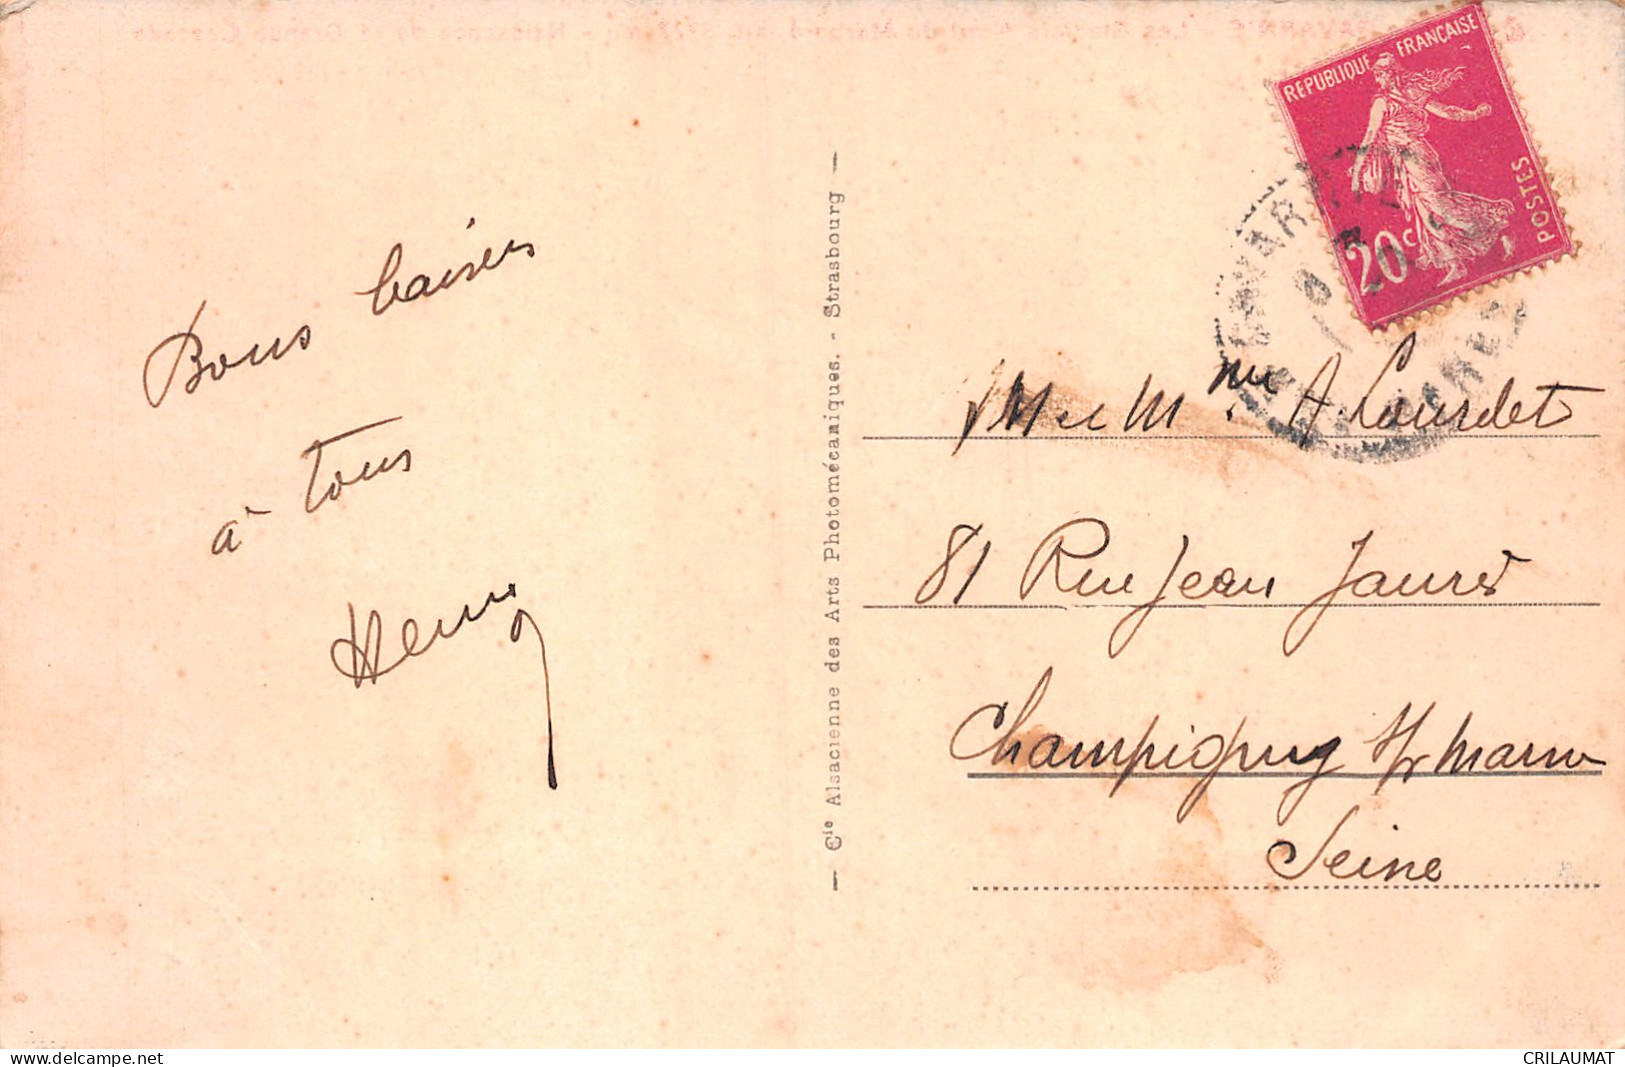 Bons baisers
à tous
Henry
— Cie Alsacienne des Arts Photomécaniques. - Strasbourg —
RÉPUBLIQUE FRANÇAISE
POSTES
20c
GAVARNIE
M et Mme A Lourdet
81 Rue Jean Jaurès
Champigny s/r Marne
Seine
www.delcampe.net
CRILAUMAT